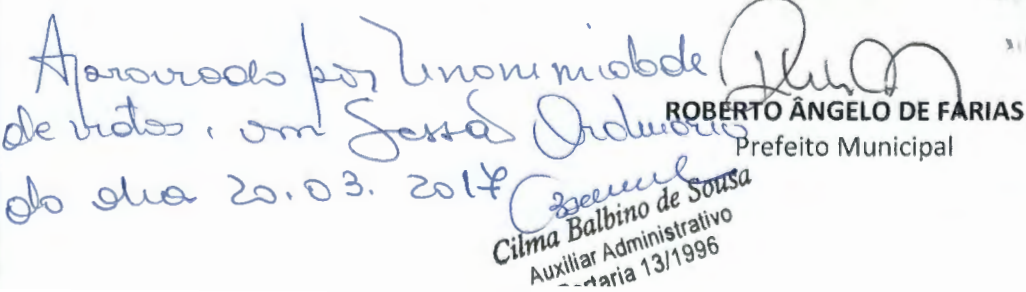 Aprovado por Unanimidade
de votos, em Sessão Ordinária
do dia 20.03.2017
ROBERTO ÂNGELO DE FARIAS
Prefeito Municipal
Cilma Balbino de Sousa
Auxiliar Administrativo
Portaria 13/1996